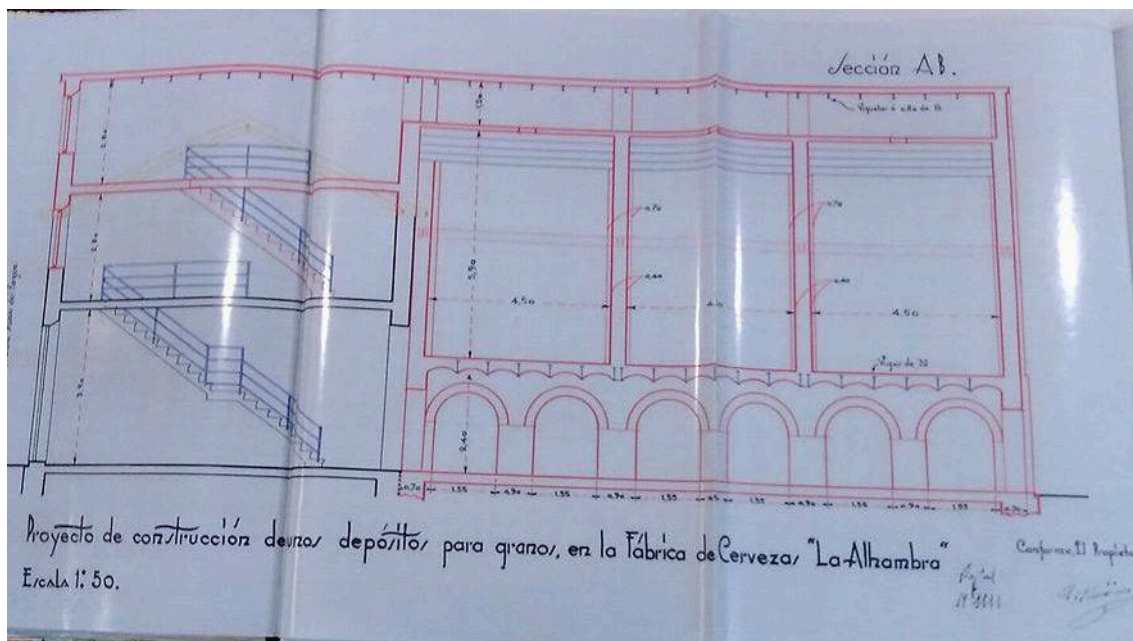 Sección AB.
Viguetas a 0,80 de 16
1,20
2,80
2,80
3,90
5,90
0,70
0,40
0,70
0,40
4,50
4,50
Vigas de 32
2,40
0,70 1,55 0,90 1,55 0,90 1,55 1,55 0,90 1,55 0,90 1,55
Proyecto de construcción de unos depósitos para granos, en la Fábrica de Cervezas "La Alhambra"
Escala 1:50.
Conforme: El Propieta